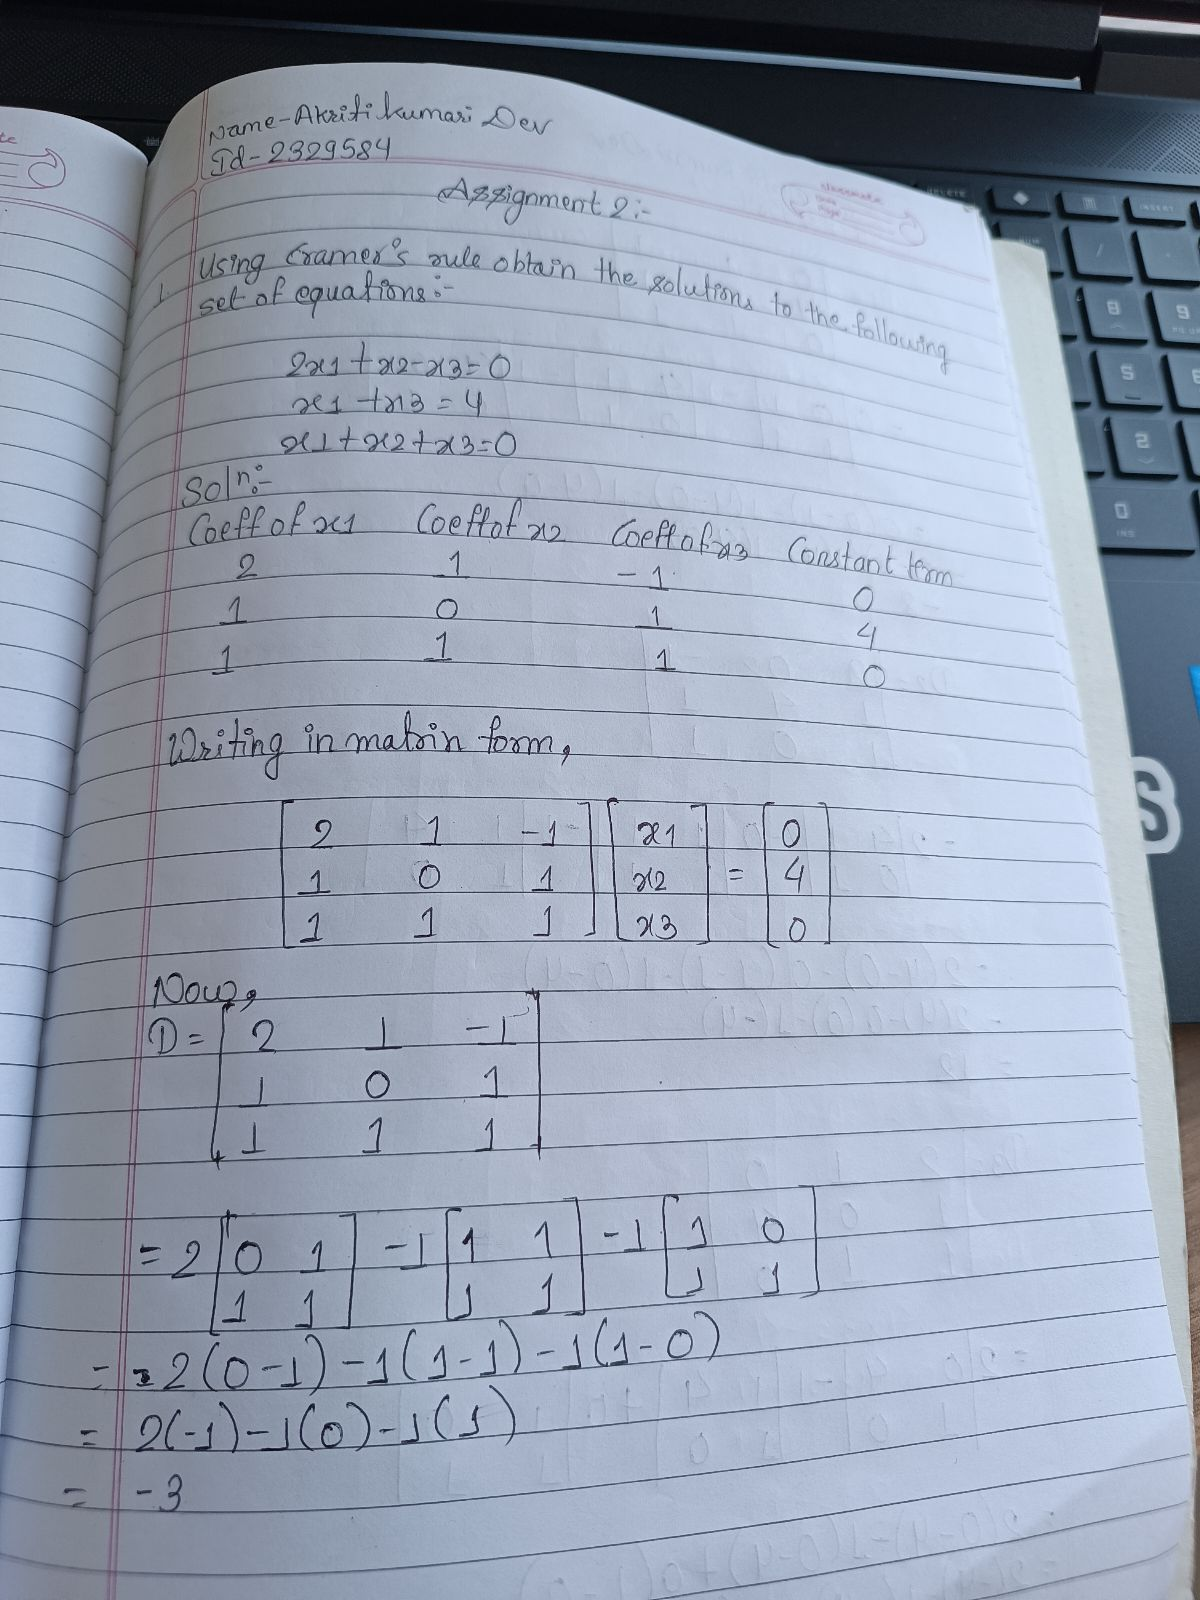 Name-Akriti kumari Dev
Id-2329584
Assignment 2:-
1. Using Cramer's rule obtain the solutions to the following
set of equations:-
2x1+x2-x3=0
x1+x3=4
x1+x2+x3=0
Soln:-
Coeff of x1 Coeff of x2 Coeff of x3 Constant term
2 1 -1 0
1 0 1 4
1 1 1 0
Writing in matrin form,
[2 1 -1] [x1] [0]
[1 0 1] [x2] = [4]
[1 1 1] [x3] [0]
Now,
D = |2 1 -1|
|1 0 1|
|1 1 1|
= 2 [0 1] -1 [1 1] -1 [1 0]
[1 1] [1 1] [1 1]
= 2(0-1)-1(1-1)-1(1-0)
= 2(-1)-1(0)-1(1)
= -3